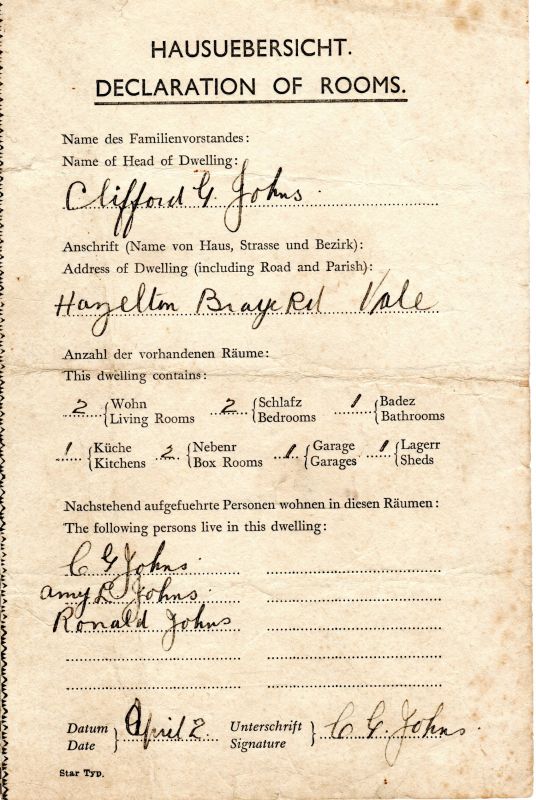 HAUSUEBERSICHT.
DECLARATION OF ROOMS.
Name des Familienvorstandes:
Name of Head of Dwelling:
Clifford G. Johns
Anschrift (Name von Haus, Strasse und Bezirk):
Address of Dwelling (including Road and Parish):
Hazelton Braye Rd Vale
Anzahl der vorhandenen Räume:
This dwelling contains:
2 Wohn Living Rooms 2 Schlafz Bedrooms 1 Badez Bathrooms
1 Küche Kitchens 2 Nebenr Box Rooms 1 Garage Garages 1 Lagerr Sheds
Nachstehend aufgefuehrte Personen wohnen in diesen Räumen:
The following persons live in this dwelling:
C G Johns
Amy L Johns
Ronald Johns
Datum Date April 2 Unterschrift Signature C G. Johns
Star Typ.